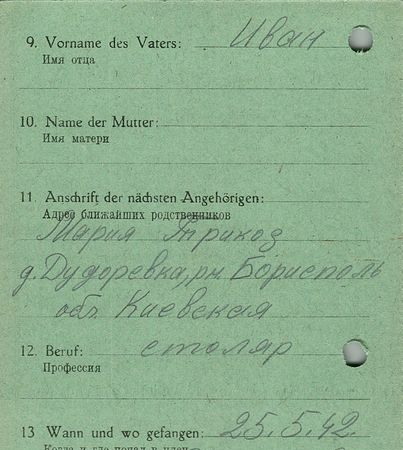 9. Vorname des Vaters: Иван
Имя отца
10. Name der Mutter:
Имя матери
11. Anschrift der nächsten Angehörigen:
Адрес ближайших родственников
Мария Трикоз
д. Дудоревка, рн. Борисполь
обл. Киевская
12. Beruf: столяр
Профессия
13 Wann und wo gefangen: 25.5.42.
Когда и где попал в плен